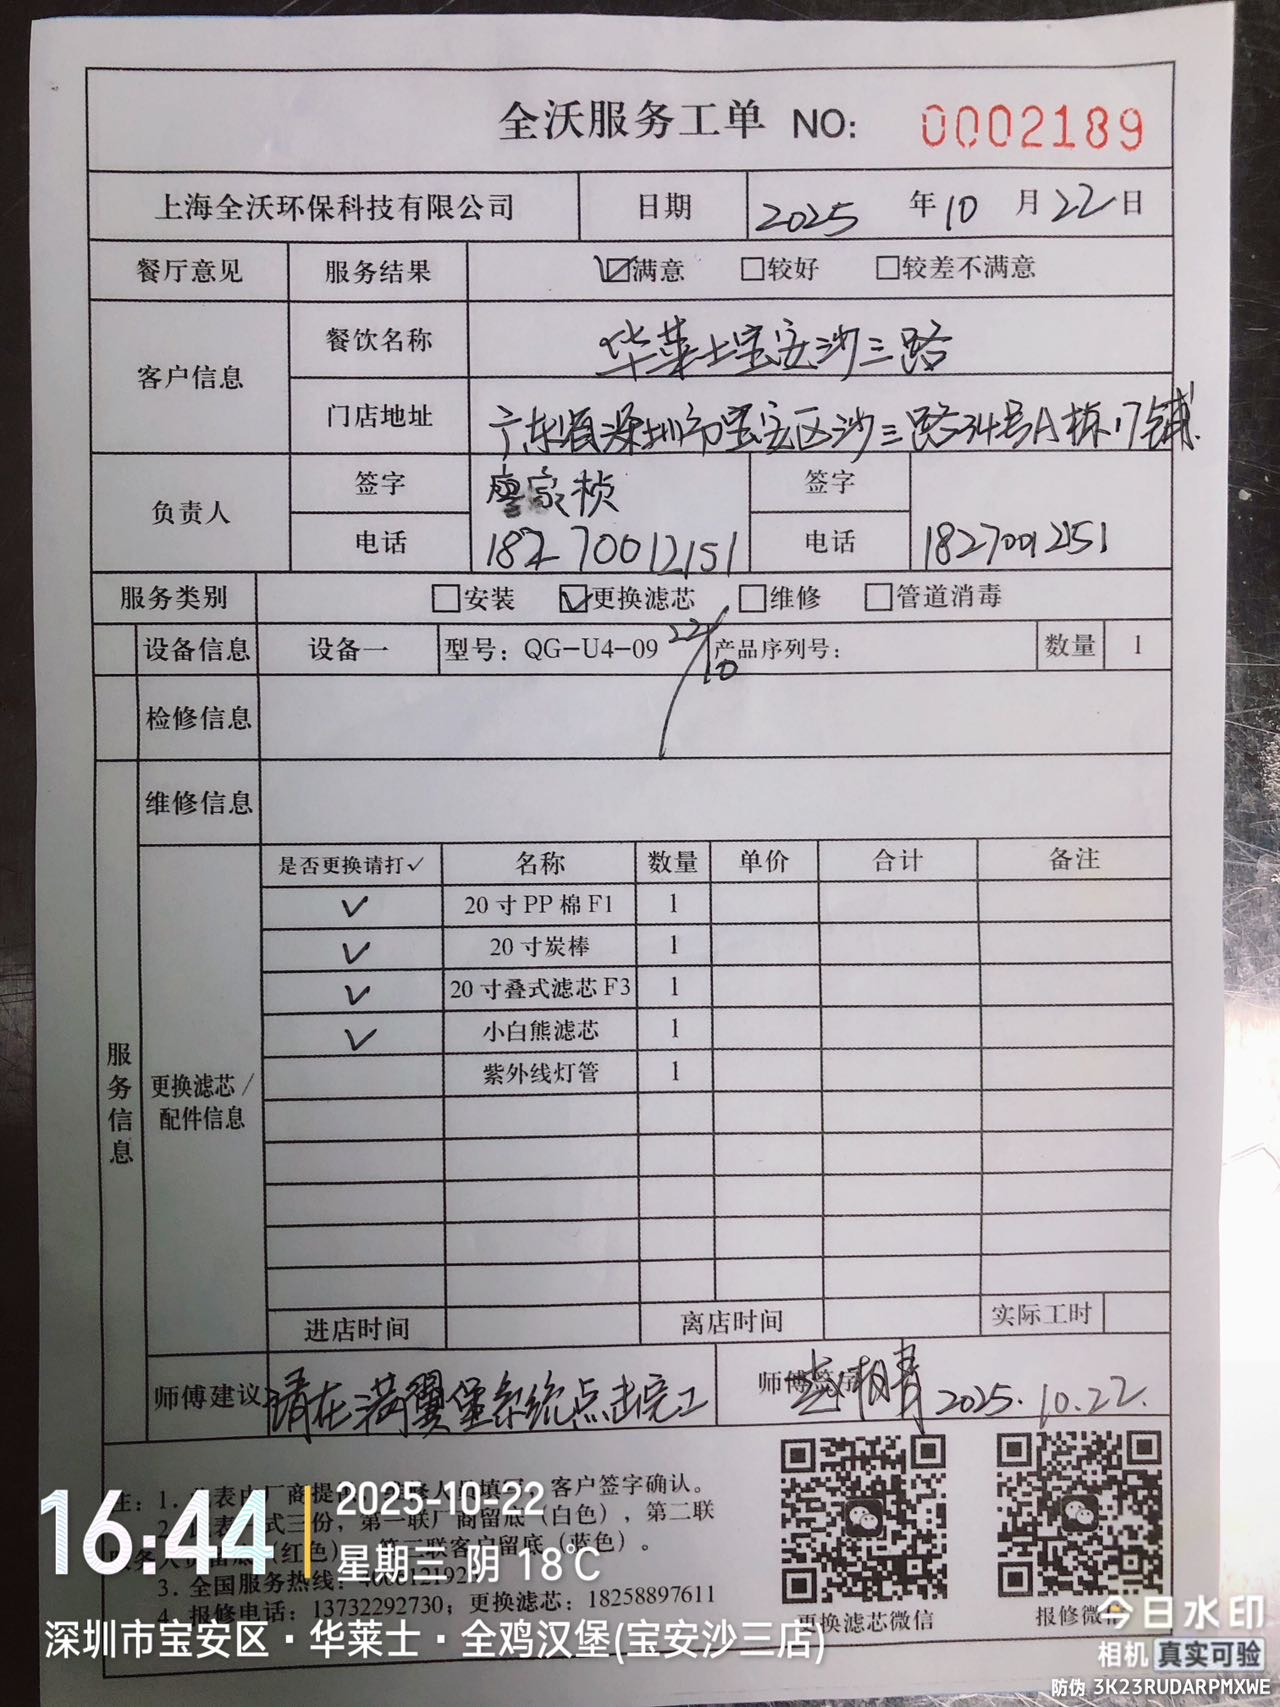 全沃服务工单 NO: 0002189
上海全沃环保科技有限公司 日期 2025 年 10 月 22 日
餐厅意见 服务结果 ☑满意 □较好 □较差不满意
客户信息 餐饮名称 华莱士宝安沙三路
门店地址 广东省深圳市宝安区沙三路34号A栋17铺
负责人 签字 廖家桢 签字
电话 18270012151 电话 1827001251
服务类别 □安装 ☑更换滤芯 □维修 □管道消毒
设备信息 设备一 型号：QG-U4-09 22/10 产品序列号： 数量 1
检修信息
维修信息
服务信息
更换滤芯/配件信息
是否更换请打✓ 名称 数量 单价 合计 备注
✓ 20寸PP棉F1 1
✓ 20寸炭棒 1
✓ 20寸叠式滤芯F3 1
✓ 小白熊滤芯 1
紫外线灯管 1
进店时间 离店时间 实际工时
师傅建议 请在满翼堡系统点击完工 师傅签字 2025.10.22.
注：1. 表由厂商提 填写，客户签字确认。
2. 表 式三份，第一联厂商留底（白色），第二联
（红色） 三联客户留底（蓝色）。
3. 全国服务热线：
4. 报修电话：13732292730；更换滤芯：18258897611
更换滤芯微信 报修微信
16:44 2025-10-22
星期三 阴 18℃
深圳市宝安区·华莱士·全鸡汉堡(宝安沙三店)
今日水印
相机 真实可验
防伪 3K23RUDARPMXWE